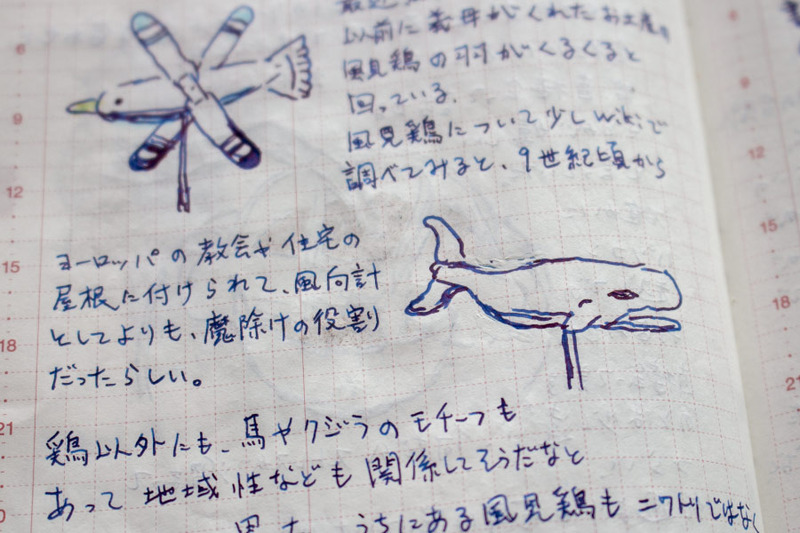 以前に義母がくれたお土産の
風見鶏の羽がくるくると
回っている。
風見鶏について少しwikiで
調べてみると、9世紀頃から
ヨーロッパの教会や住宅の
屋根に付けられて、風向計
としてよりも、魔除けの役割
だったらしい。
鶏以外にも、馬やクジラのモチーフも
あって地域性なども関係してそうだなと
うちにある風見鶏もニワトリではなく
6
9
12
15
18
21
0
6
9
12
15
18
21